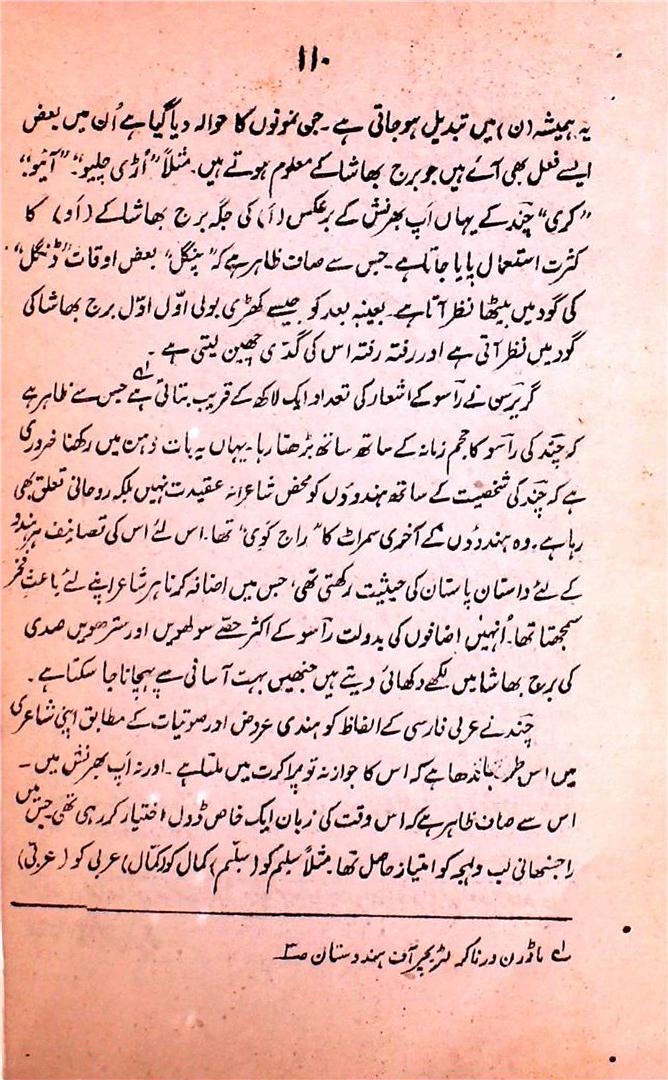 ۱۱۰
یہ ہمیشہ (ن) میں تبدیل ہو جاتی ہے۔ جن نمونوں کا حوالہ دیا گیا ہے اُن میں بعض
ایسے فعل بھی آئے ہیں جو برج بھاشا کے معلوم ہوتے ہیں۔ مثلاً "اُڑی چلیو"۔ "آئیو"۔
"کری" چند کے یہاں اَپ بھرنش کے برعکس (اَ) کی جگہ برج بھاشا کے (اَو) کا
کثرت استعمال پایا جاتا ہے۔ جس سے صاف ظاہر ہے کہ "پنگل" بعض اوقات "ڈنگل"
کی گود میں بیٹھا نظر آتا ہے۔ بعینہٖ بعد کو جیسے کھڑی بولی اوّل اوّل برج بھاشا کی
گود میں نظر آتی ہے اور رفتہ رفتہ اس کی گدّی چھین لیتی ہے۔
گریرسن نے راسو کے اشعار کی تعداد ایک لاکھ کے قریب بتائی ہے؂۱ جس سے ظاہر ہے
کہ چند کی راسو کا حجم زمانہ کے ساتھ ساتھ بڑھتا رہا۔ یہاں یہ بات ذہن میں رکھنا ضروری
ہے کہ چند کی شخصیت کے ساتھ ہندوؤں کو محض شاعرانہ عقیدت نہیں بلکہ روحانی تعلق بھی
رہا ہے۔ وہ ہندوؤں کے آخری سمراٹ کا "راج کَوی" تھا۔ اس لئے اس کی تصانیف ہر ہندو
کے لئے داستان پاستان کی حیثیت رکھتی تھی، جس میں اضافہ کرنا ہر شاعر اپنے لئے باعثِ فخر
سمجھتا تھا۔ اُنہیں اضافوں کی بدولت راسو کے اکثر حصّے سولھویں اور سترھویں صدی
کی برج بھاشا میں لکھے دکھائی دیتے ہیں جنھیں بہت آسانی سے پہچانا جا سکتا ہے۔
چند نے عربی فارسی کے الفاظ کو ہندی عروض اور صوتیات کے مطابق اپنی شاعری
میں اس طرح باندھا ہے کہ اس کا جواز نہ تو پراکرت میں ملتا ہے۔ اور نہ اَپ بھرنش میں۔
اس سے صاف ظاہر ہے کہ اس وقت کی زبان ایک خاص ڈول اختیار کر رہی تھی جس میں
راجستھانی لب و لہجہ کو امتیاز حاصل تھا۔ مثلاً سلیم کو (سلّیم) کمال کو (کمّال) عربی کو (عربّی)
؂۱ ماڈرن ورناکر لٹریچر آف ہندوستان صـ۳